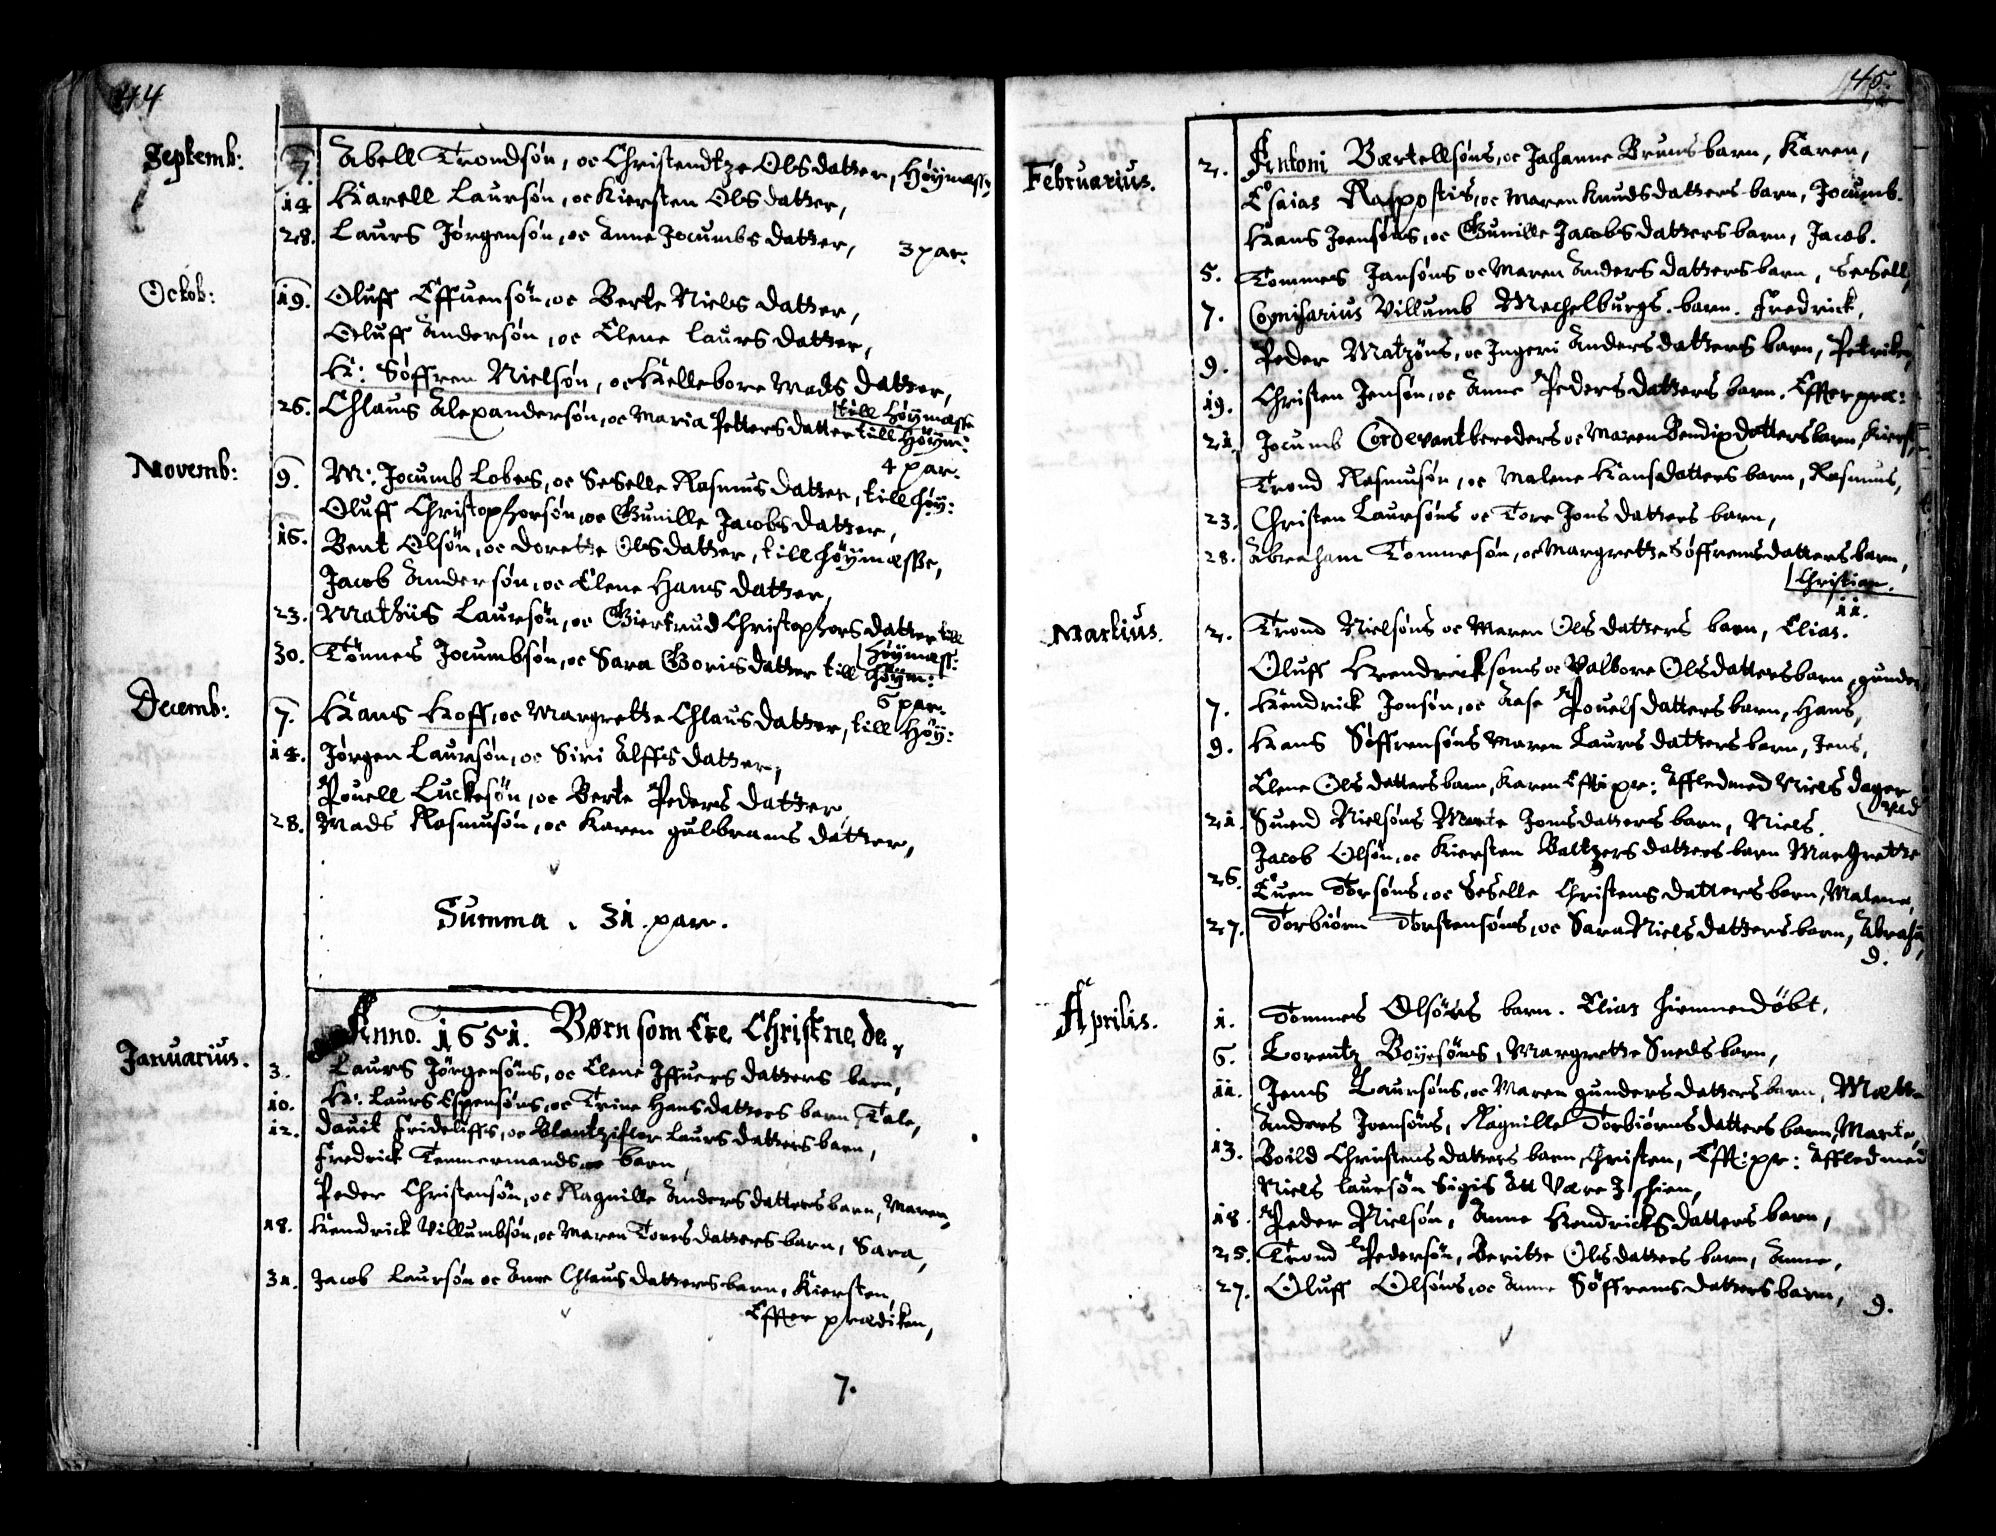 44
Septemb:
7. Abell Trondsøn, oc Christendtze Olsdatter, Høymess:
14 Karell Laursøn, oc Kiersten Olsdatter,
28. Laurs Jørgensøn, oc Anne Jocumbs datter, 3 par.
Octob:
19. Oluff Effuensøn, oc Berte Niels datter,
Oluff Andersøn, oc Elene Laurs datter,
H: Søffren Nielsøn, oc Hellebore Mads datter,
till Høymesse
26. Chlaus Alexandersøn, oc Maria Petters datter till Høym:
4 par.
Novemb:
9. M: Jocumb Lobes, oc Seselle Rasmus datter, till høy:
Oluff Christophorsøn, oc Gunille Jacobs datter,
16. Bent Olsøn, oc Dorette Olsdatter, till høymesse,
Jacob Andersøn, oc Elene Hans datter,
23. Mathiis Laursøn, oc Giertrud Christophors datter till
Høymess:
30. Tønnes Jocumbsøn, oc Sara Goris datter till høym:
6 par.
Decemb:
7. Hans Hoff, oc Margrette Chlaus datter, till Høy:
14. Jørgen Laursøn, oc Siri Alffs datter,
Pouell Luckesøn, oc Berte Peders datter
28. Mads Rasmusøn, oc Karen gulbrans datter,
Summa . 31 . par.
Anno. 1651. Børn som ere Christnede,
Januarius.
3. Laurs Jørgensøns, oc Elene Iffuers datters barn,
10. H: Laurs Espensøns, oc Trine Hans datters barn Tale,
12. Dauit Frideliffs, oc Blantzifler Laurs datters barn,
Fredrick Temmermands barn,
Peder Christensøn, oc Ragnille Anders datters barn, Maren,
18. Hendrick Villumbsøn, oc Maren Tores datters barn, Sara,
31. Jacob Laursøn oc Anne Chlaus datters barn, Kiersten,
Effter prædiken,
7.
45.
Februarius.
2. Antoni Bertellsøns, oc Johanne Bruns barn, Karen,
Esaias Raspostis, oc Maren Knudsdatters barn, Jocumb.
Hans Joensøns, oc Gunille Jacobs datters barn, Jacob.
5. Tommes Jansøns oc Maren Anders datters barn, Sesell,
7. Comisarius Villumb Mechelburgs. barn. Fredrick,
9. Peder Matzøns, oc Ingeri Anders datters barn, Petriken,
19. Christen Jensøn, oc Anne Peders datters barn. Effter præ:
21. Jocumb Cordevantbereders oc Maren Bendix datters barn, Kierst,
Trond Rasmusøn, oc Malene Hansdatters barn, Rasmus,
23. Christen Laursøns oc Tore Jons datters barn,
28. Abraham Tommesøn, oc Margrette Søffrens datters barn,
Christian.
11.
Martius.
2. Trond Nielsøns oc Maren Ols datters barn, Elias.
Oluff Hendricksøns oc Valbore Olsdatters barn, gunder
7. Hendrick Jonsøn, oc Aase Pouels datters barn, Hans,
9. Hans Søffrensøns Maren Laurs datters barn, Jens,
Elene Ols datters barn, Karen Efft: pr: Affled med Niels dager
vad
21. Suend Nielsøns Marte Jons datters barn, Niels.
Jacob Olsøn, oc Kiersten Baltzers datters barn Margrette
26. Euen Torsøns, oc Seselle Christens datters barn, Malene,
27. Torbiørn Torstensøns, oc Sara Niels datters barn, Abrah
9.
Aprilis.
1. Tommes Olsøns barn. Elias hiemmendøbt,
6. Lorentz Boyesøns, Margrette Sneds barn,
11. Jens Laursøns, oc Maren gunders datters barn, Mætte
Anders Joensøns, Ragnille Torbiørns datters barn, Marte,
13. Boild Christens datters barn, Christen, Efft: pr: Affled med
Niels Laursøn Sigis Att Være J schien,
18. Peder Nielsøn, Anne Hendricks datters barn,
25. Trond Pedersøn, Beritte Olsdatters barn, Anne,
27. Oluff Olsøns, oc Anne Søffrens datters barn,
9.